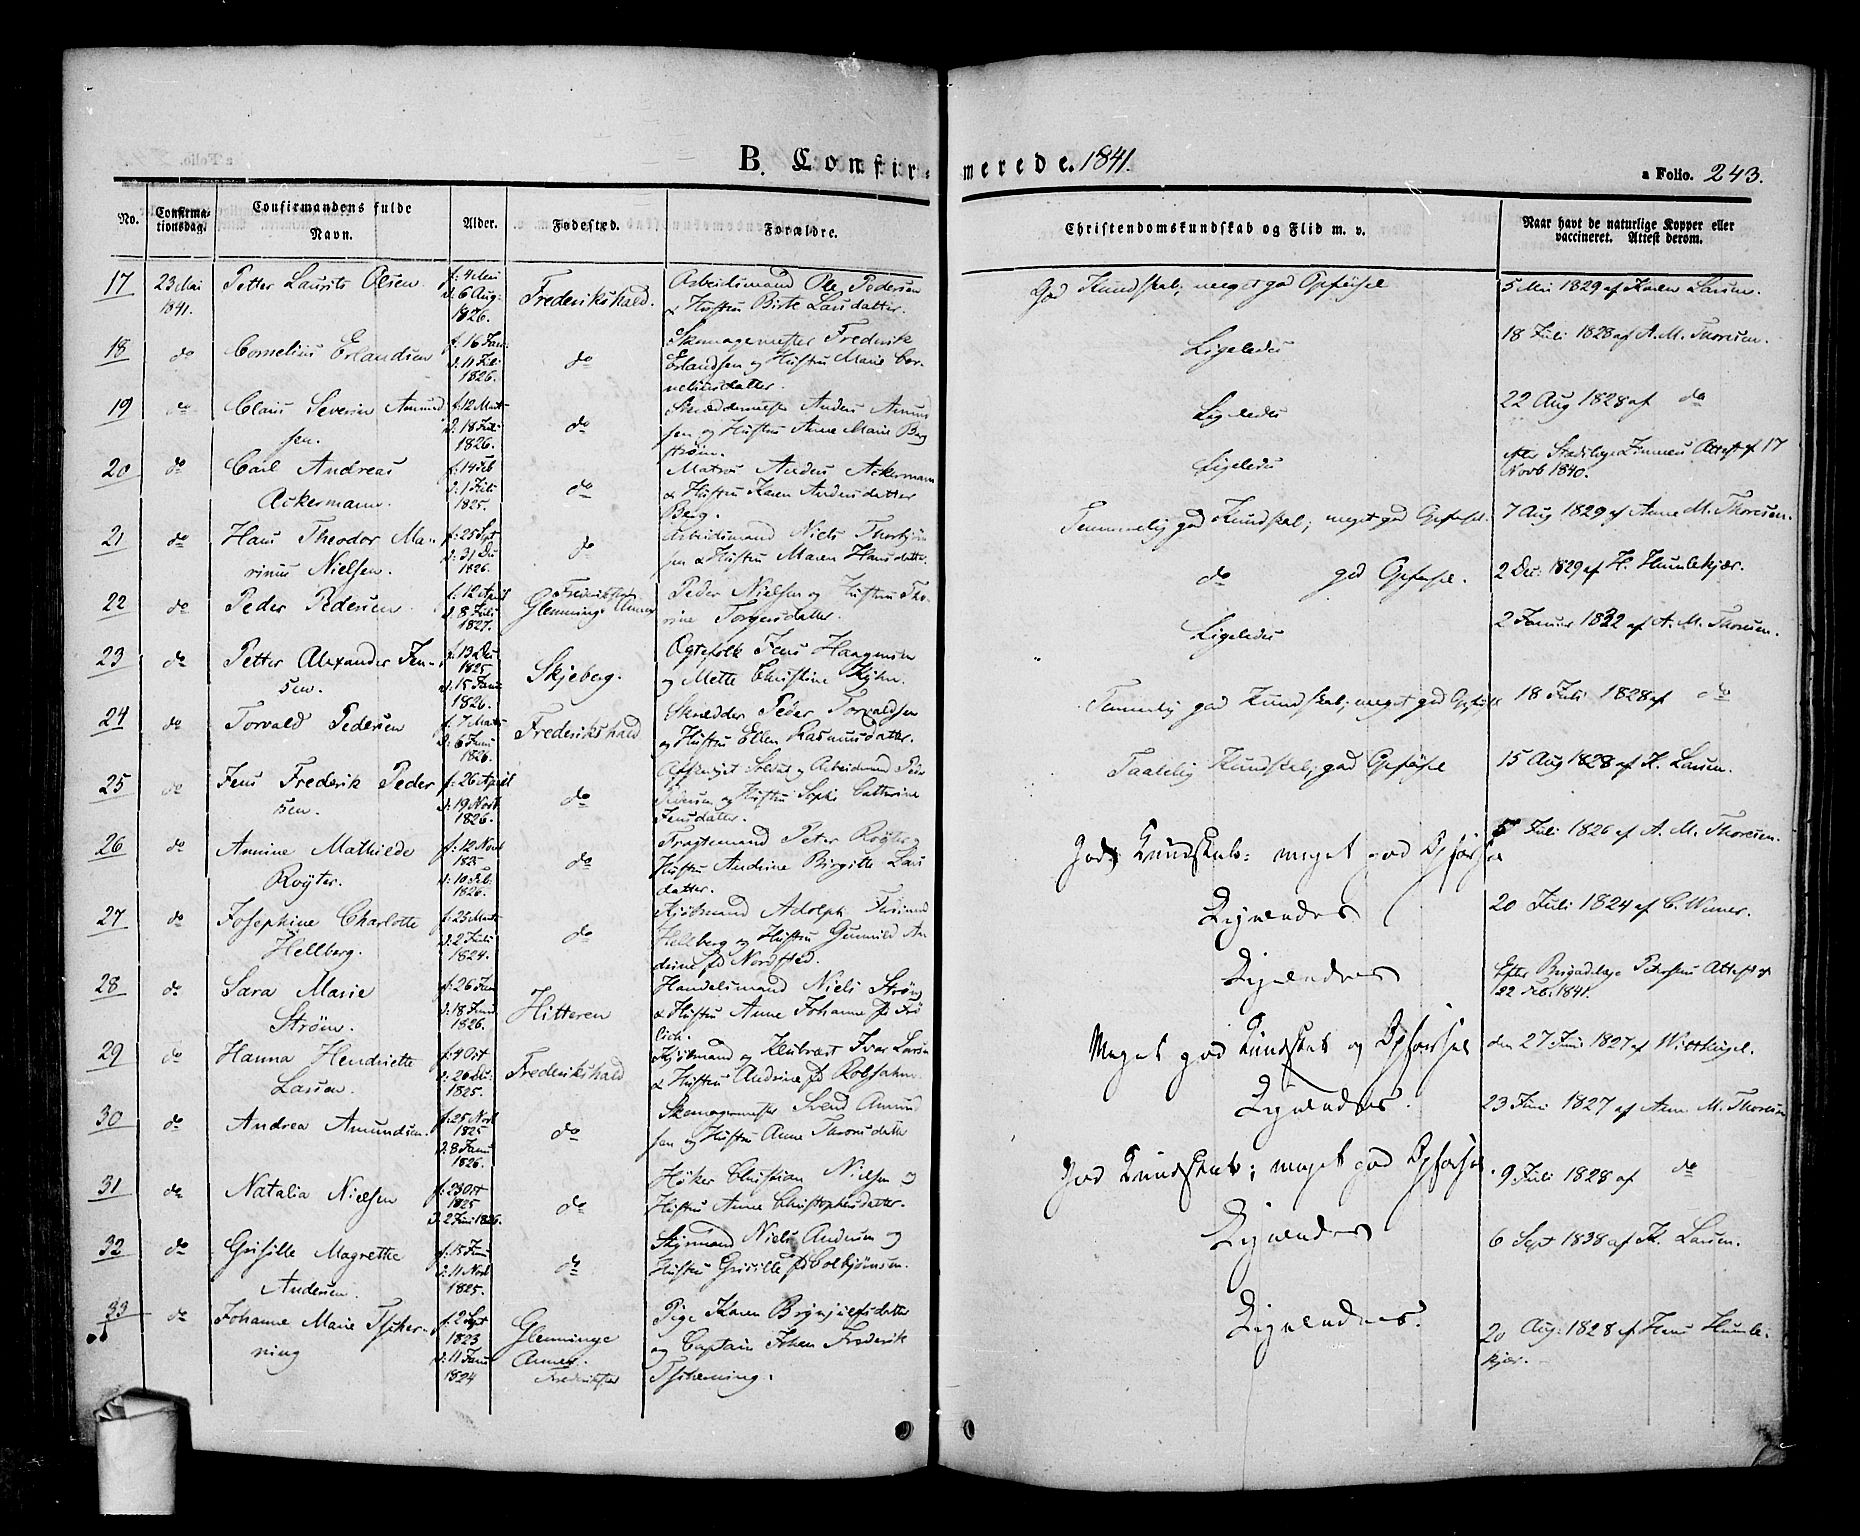 B. Confirmerede. 1841.
a Folio. 243.
No.
Confirmationsdag.
Confirmandens fulde Navn.
Alder.
Fødested.
Forældre.
Christendomskundskab og Flid m. v.
Naar havt de naturlige Kopper eller vaccineret. Attest derom.
17 23 Mai 1841. Petter Laurits Olsen. f: 4 Mai d: 6 Aug: 1826. Frederikshald. Arbeidsmand Ole Pedersen & Hustru Birte Larsdatter. God Kundskab; meget god Opførsel 5 Mai 1829 af Karen Larsen.
18 do Cornelius Erlandsen f: 16 Jan: d: 11 1826. do Skomagermester Frederik Erlandsen og Hustru Marie Corneliusdatter. Ligeledes 18 Juli 1828 af A. M. Thoresen.
19 do Claus Severin Amundsen. f: 12 Mart d: 18 Juli 1826. do Skræddermester Anders Amundsen og Hustru Anne Marie Bergstrøm. Ligeledes 22 Aug 1828 af do
20 do Carl Andreas Ackermann. f: 14 Feb d: 1 1825. do Matros Anders Ackermann & Hustru Karen Andersdatter Berg. Ligeledes efter Attest af 17 Novb 1840.
21 do Hans Theodor Marinus Nielsen. f: 25 Sept d: 31 De 1826. do Arbeidsmand Niels Thorbjørnsen & Hustru Maren Hansdatter. Temmelig god Kundskab; meget god Opførsel. 7 Aug 1829 af Anne M. Thoresen.
22 do Peder Pedersen. f: 12 April d: 8 Juli 1827. Glemminge Annex Peder Nielsen og Hustru Thorine Torgersdatter. do god Opførsel. 2 Dec: 1829 af H. Humlekjær.
23 do Petter Alexander Jensen. f: 13 Dec 1825 d: 15 Janu 1826. Skjeberg. Ægtefolk Jens Haagensen og Mette Christine Ligeledes 2 Januar 1832 af A. M. Thoresen.
24 do Torvald Pedersen f: 7 Mart d: 6 Juni 1826. Frederikshald Skrædder Peder Torvaldsen og Hustru Ellen Rasmusdatter. Temmelig god Kundskab; meget god Opførsel 18 Juli 1828 af do
25 do Jens Frederik Pedersen. f: 26 April d: 19 Novb. 1826. do Afskediget Soldat og Arbeidsmand Peder Pedersen og Hustru Sophi Cathrine Jensdatter. Taalelig Kundskab; god Opførsel 15 Aug 1828 af K. Larsen.
26 do Annine Mathilde Røyter. f: 12 Novb 1825 d: 10 Feb: 1826. do Fragtemand Peter Røyter, Hustru Andrine Birgitte Larsdatter. God Kundskab: meget god Opførsel 5 Juli 1826 af A. M. Thoresen.
27 do Josephine Charlotte Hellberg. f: 25 Mart d: 2 Juli 1824. do Adolph Hellberg og Hustru Gunnild Andrine fd Nordsted. Ligeledes 20 Juli 1824 af C. Wiener.
28 do Sara Marie Strøm. f: 26 d: 18 Juni 1826. Hitteren Handelsmand Niels Strøm & Hustru Anne Johanne fd Frölich. Ligeledes Efter Brigadelæge Petersens Attest af 22 Feb. 1841.
29 do Hanna Hendriette Larsen. f: 4 Oct d: 26 De: 1825. Frederikshald og Ivar Larsen & Hustru Andrine fd Kolsahn. Meget god Kundskab og Opførsel den 27 Juni 1827 af Wittkugel.
30 do Andrea Amundsen. f: 25 Novb 1825 d: 8 Janu 1826. do Skomagermester Svend Amundsen og Hustru Anne Ligeledes. 23 Juni 1827 af Anne M. Thoresen
31 do Natalia Nielsen f: 23 Oct 1825 d: 2 Juni 1826. do Høker Christian Nielsen og Hustru Anne Christophersdatter. God Kundskab; meget god Opførsel. 9 Juli 1828 af do
32 do Grisille Magrethe Andersen. f: 15 d: 11 Novb 1825. do Niels Andersen og Hustru Grisille fd Colbjørnsen. Ligeledes 6 Sept 1838 af K. Larsen.
33 do Johanne Marie Tscherning f: 2 Sept 1823 d: 11 Janu 1824 Glemminge Annex. Pige Karen Brynjulfsdatter og Captain Johan Frederik Tscherning. Ligeledes. 20 Aug: 1828 af Hans Humlekjær.